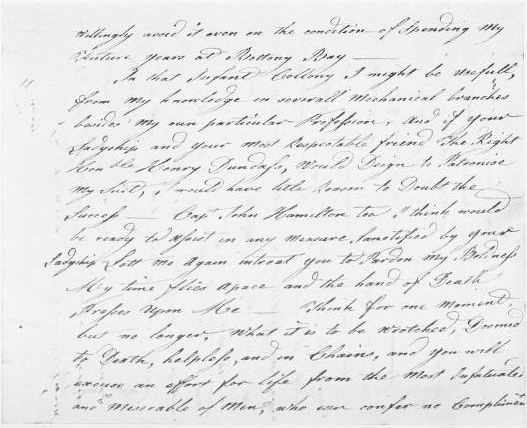 willingly avoid it even on the condition of Spending My
Future years at Bottony Bay —
In that Infant Collony I might be usefull,
from my knowledge in severall Mechanical branches
besides my own particular Profession, And if your
Ladyship and your most Respectable friend The Right
Honble Henry Dundass, Would Deign to Patronise
My Suit, I would have little Reason to Doubt the
Success — Capt John Hamilton too I think would
be ready to Assist in any Measure Sanctified by your
Ladyship Lett me Again intreat you to Pardon my Boldness
My time flies apace and the hand of Death
Presses Upon Me — Think for one Moment
but no longer, What it is to be wretched, Doomed
to Death, helpless, and in Chains, and you will
excuse an effort for life from the Most Infatuated
and Miserable of Men, who can confer no Compliment